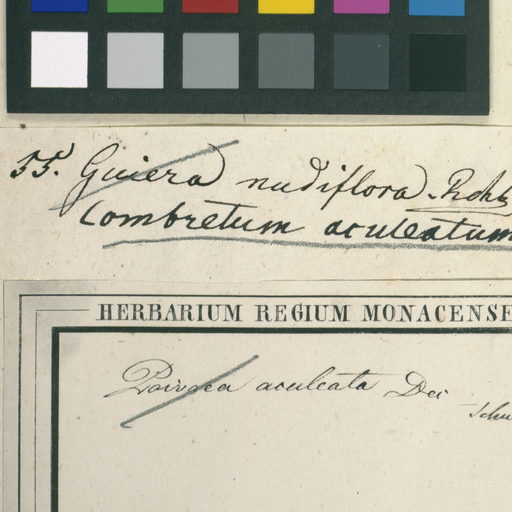 55. Guiera nudiflora. Rchb
Combretum aculeatum
HERBARIUM REGIUM MONACENSE
Poivrea aculeata Dec
Schu